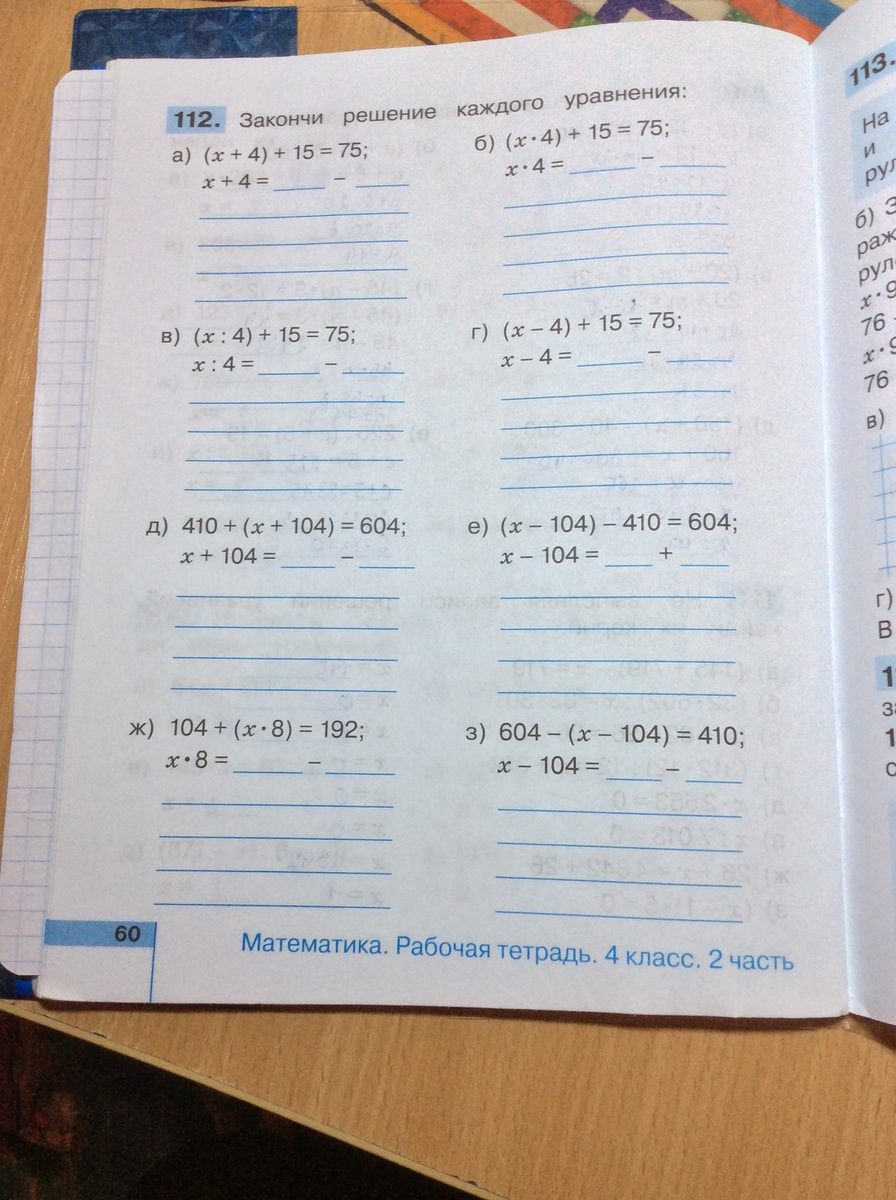 112. Закончи решение каждого уравнения:
а) (x + 4) + 15 = 75;
x + 4 = ____ – ____
б) (x · 4) + 15 = 75;
x · 4 = ____ – ____
в) (x : 4) + 15 = 75;
x : 4 = ____ – ____
г) (x – 4) + 15 = 75;
x – 4 = ____ – ____
д) 410 + (x + 104) = 604;
x + 104 = ____ – ____
е) (x – 104) – 410 = 604;
x – 104 = ____ + ____
ж) 104 + (x · 8) = 192;
x · 8 = ____ – ____
з) 604 – (x – 104) = 410;
x – 104 = ____ – ____
60
Математика. Рабочая тетрадь. 4 класс. 2 часть
113.
На
и
б)
x · 9
76
76
в)
г)
В